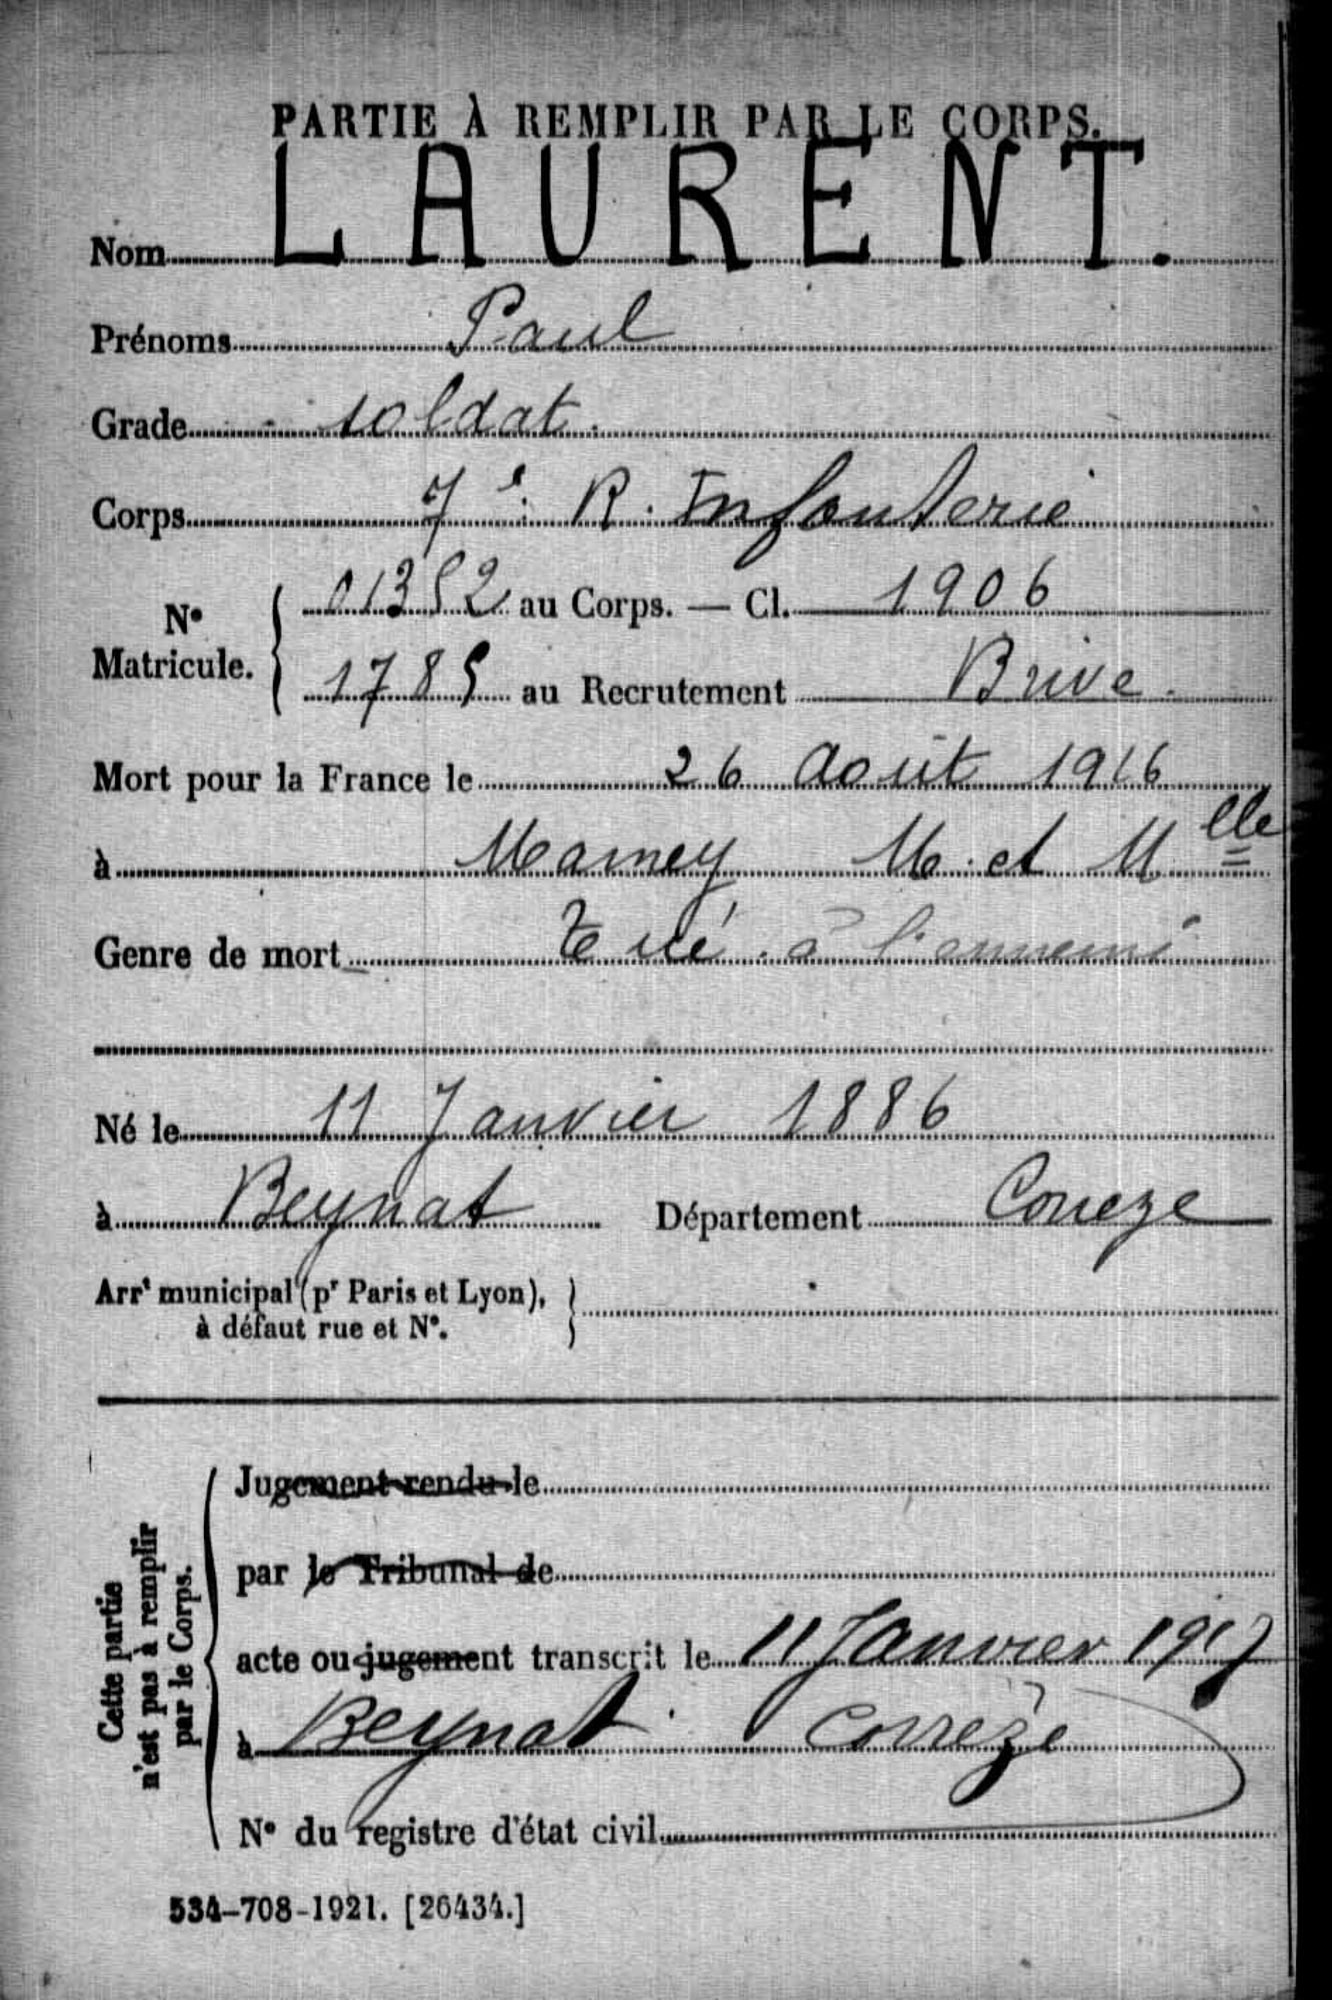 PARTIE À REMPLIR PAR LE CORPS.
Nom LAURENT.
Prénoms Paul
Grade soldat.
Corps 7e R. Infanterie
N° Matricule. { 01352 au Corps. — Cl. 1906
1785 au Recrutement Brive.
Mort pour la France le 26 Août 1916
à Mamey M. et Mlle
Genre de mort tué à l'ennemi
Né le 11 Janvier 1886
à Beynat Département Correze
Arrt municipal (pr Paris et Lyon),
à défaut rue et N°.
Cette partie
n'est pas à remplir
par le Corps.
Jugement rendu le
par le Tribunal de
acte ou jugement transcrit le 11 Janvier 1917
à Beynat Corrèze
N° du registre d'état civil
534-708-1921. [26434.]